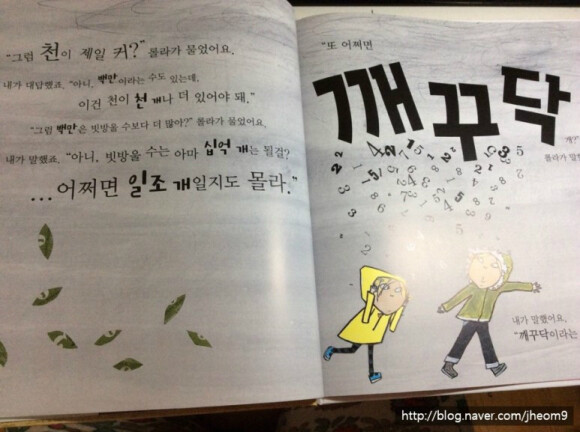 "그럼 천이 제일 커?" 롤라가 물었어요.
내가 대답했죠. "아니, 백만이라는 수도 있는데,
이건 천이 천 개나 더 있어야 돼."
"그럼 백만은 빗방울 수보다 더 많아?" 롤라가 물었어요.
내가 말했죠. "아니, 빗방울 수는 아마 십억 개는 될걸?
...어쩌면 일조 개일지도 몰라."
"또 어쩌면
깨꾸닥
개?"
롤라가 말
내가 말했어요.
"깨꾸닥이라는
http://blog.naver.com/jheom9